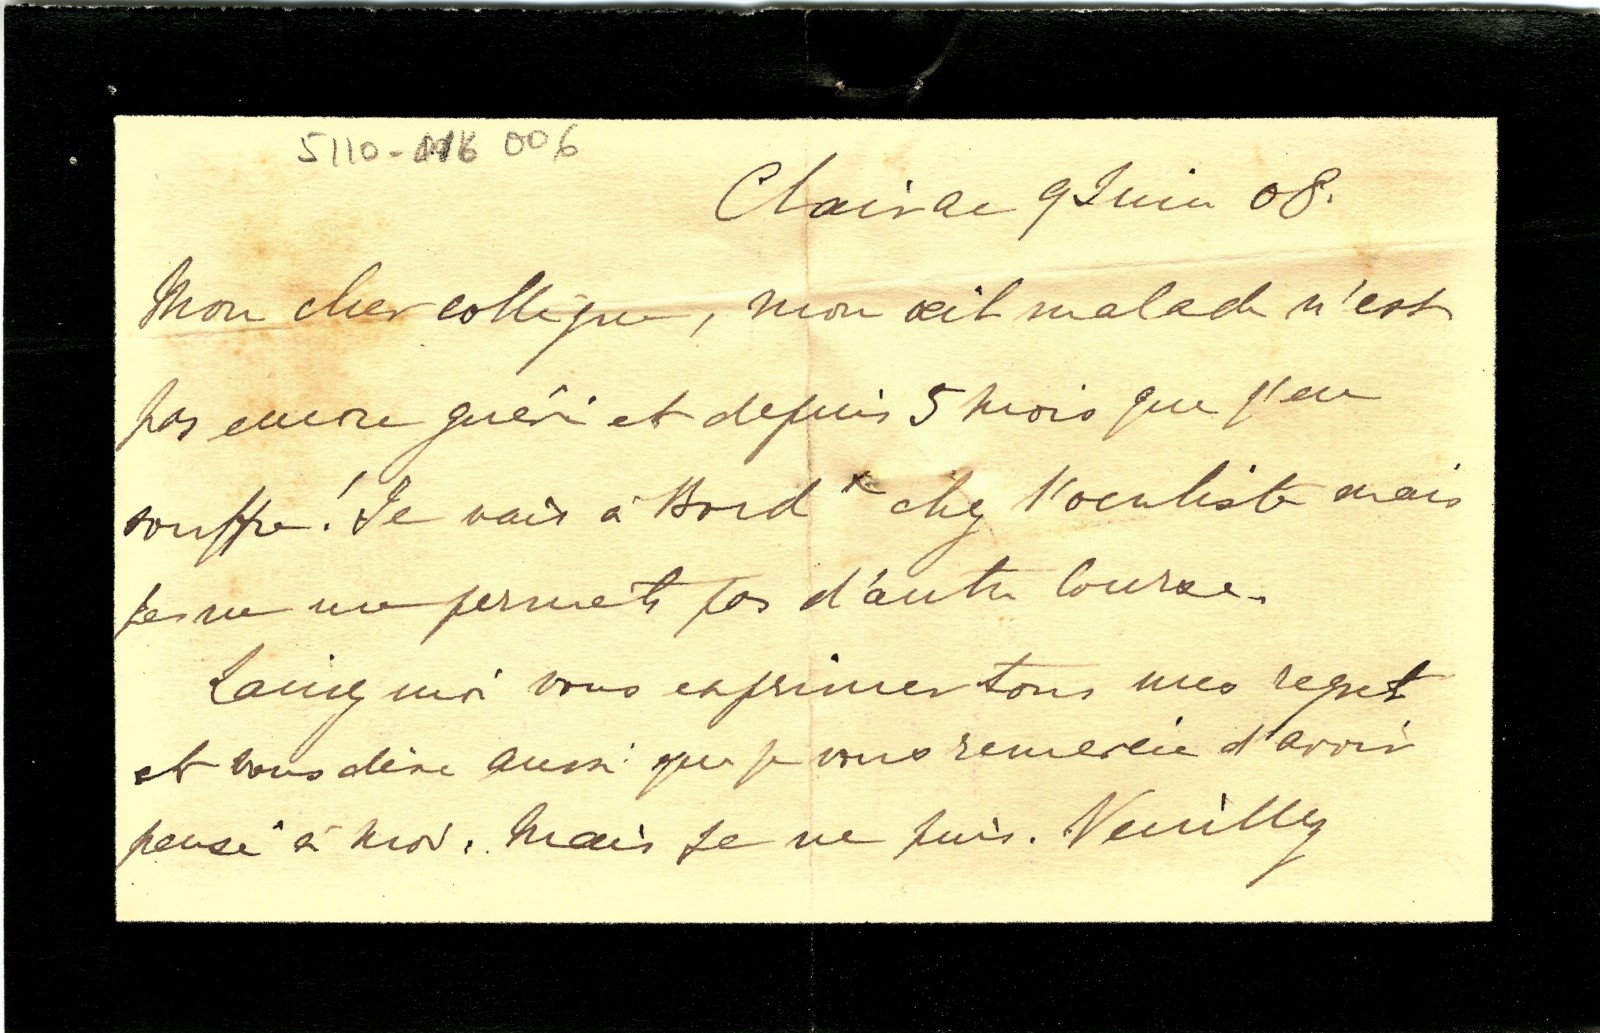 5110-116 006
Clairac 9 Juin 08.
Mon cher collègue, mon œil malade n'est
pas encore guéri et depuis 5 mois que j'en
souffre! Je vais à Bordx chez l'oculiste mais
je ne me permets pas d'autre course.
Laissez moi vous exprimer tous mes regrets
et vous dire aussi que je vous remercie d'avoir
pensé à moi. Mais je ne puis. Veuillez